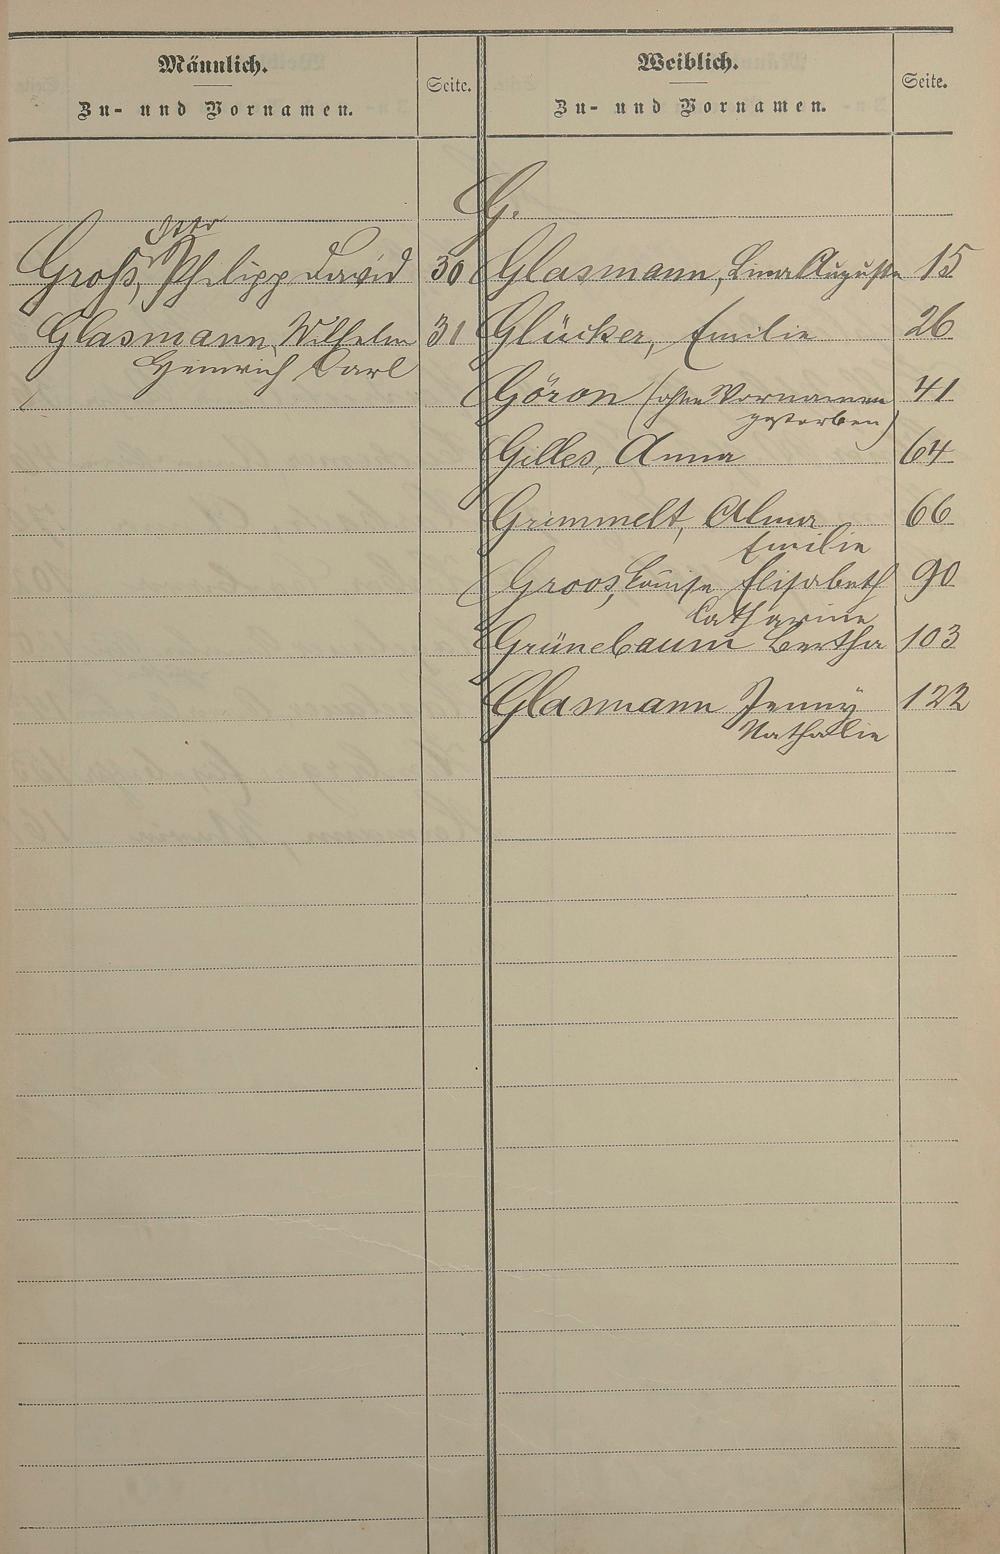 Männlich.
Zu- und Vornamen.
Seite.
Weiblich.
Zu- und Vornamen.
Seite.
G.
Otto
Groß, Philipp David 30
Glasmann, Wilhelm 31
Heinrich Carl
Glasmann, Lina Auguste 15
Glücker, Emilie 26
Göron (ohne Vornamen 41
gestorben)
Gilles, Anna 64
Grimmelt, Alma 66
Emilie
Groos, Louise Elisabeth 90
Catharine
Grünebaum Bertha 103
Glasmann Jenny 122
Nathalie